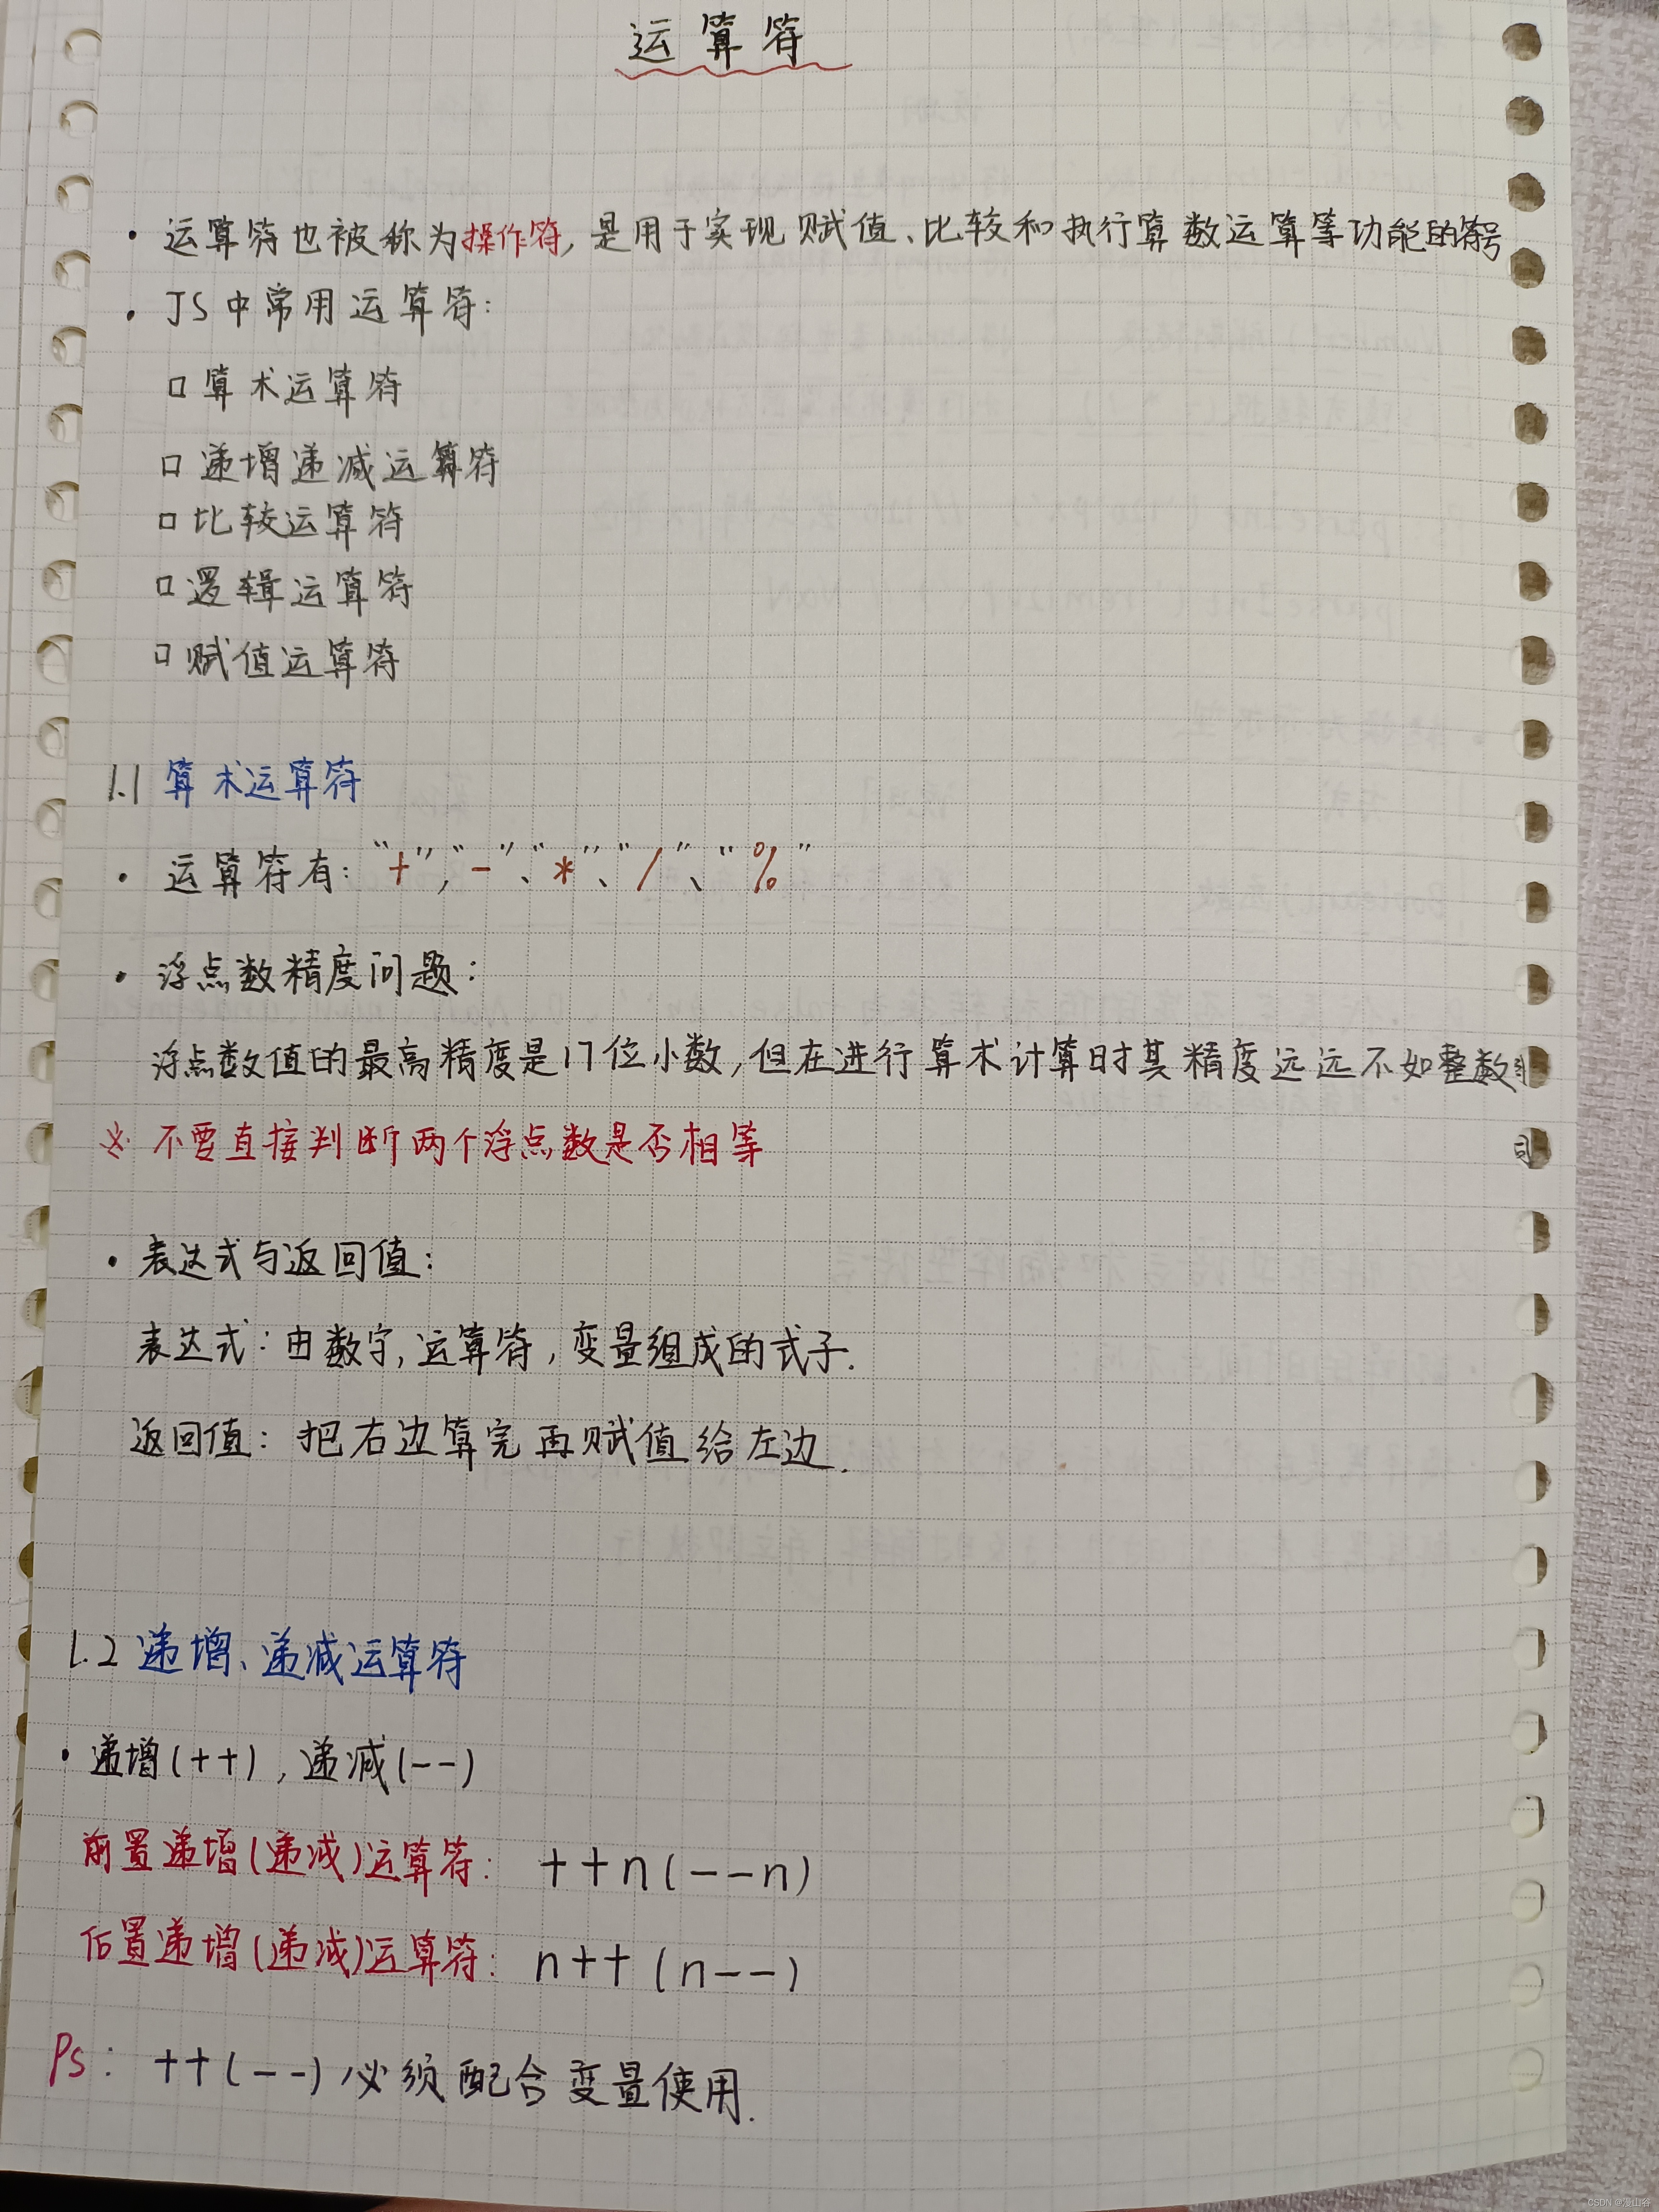 运算符
· 运算符也被称为操作符, 是用于实现赋值、比较和执行算数运算等功能的符号
· JS中常用运算符:
□ 算术运算符
□ 递增递减运算符
□ 比较运算符
□ 逻辑运算符
□ 赋值运算符
1.1 算术运算符
· 运算符有: “+”, “-”、“*”、“/”、“%”
· 浮点数精度问题:
浮点数值的最高精度是17位小数, 但在进行算术计算时其精度远远不如整数
※ 不要直接判断两个浮点数是否相等
· 表达式与返回值:
表达式: 由数字, 运算符, 变量组成的式子.
返回值: 把右边算完再赋值给左边.
1.2 递增、递减运算符
· 递增(++), 递减(--)
前置递增(递减)运算符: ++n(--n)
后置递增(递减)运算符: n++ (n--)
Ps: ++(--)必须配合变量使用.
CSDN @漫山谷